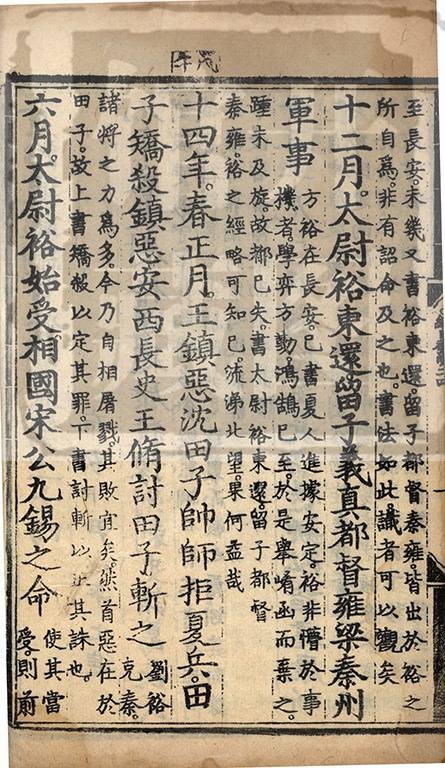 戊午
至長安。未幾又書裕東還留子都督秦雍。皆出於裕之
所自爲。非有詔命及之也。書法如此。識者可以觀矣
十二月。太尉裕東還留子義真都督雍梁秦州
軍事
方裕在長安。已書夏人進據安定。裕非懵於事
機者學弈方動。鴻鵠已至。於是舉崤函而棄之。
踵未及旋。故都已失。書太尉裕東還。留子都督
秦雍。裕之經略可知已。流涕北望。果何益哉
十四年。春正月。王鎮惡沈田子帥師拒夏兵。田
子矯殺鎮惡安西長史王脩討田子斬之
劉裕
克秦。
諸將之力爲多。今乃自相屠戮。其敗宜矣。然首惡在於
田子。故上書矯殺以定其罪。下書討斬以正其誅也。
六月。太尉裕始受相國宋公九錫之命
使其當
受。則前